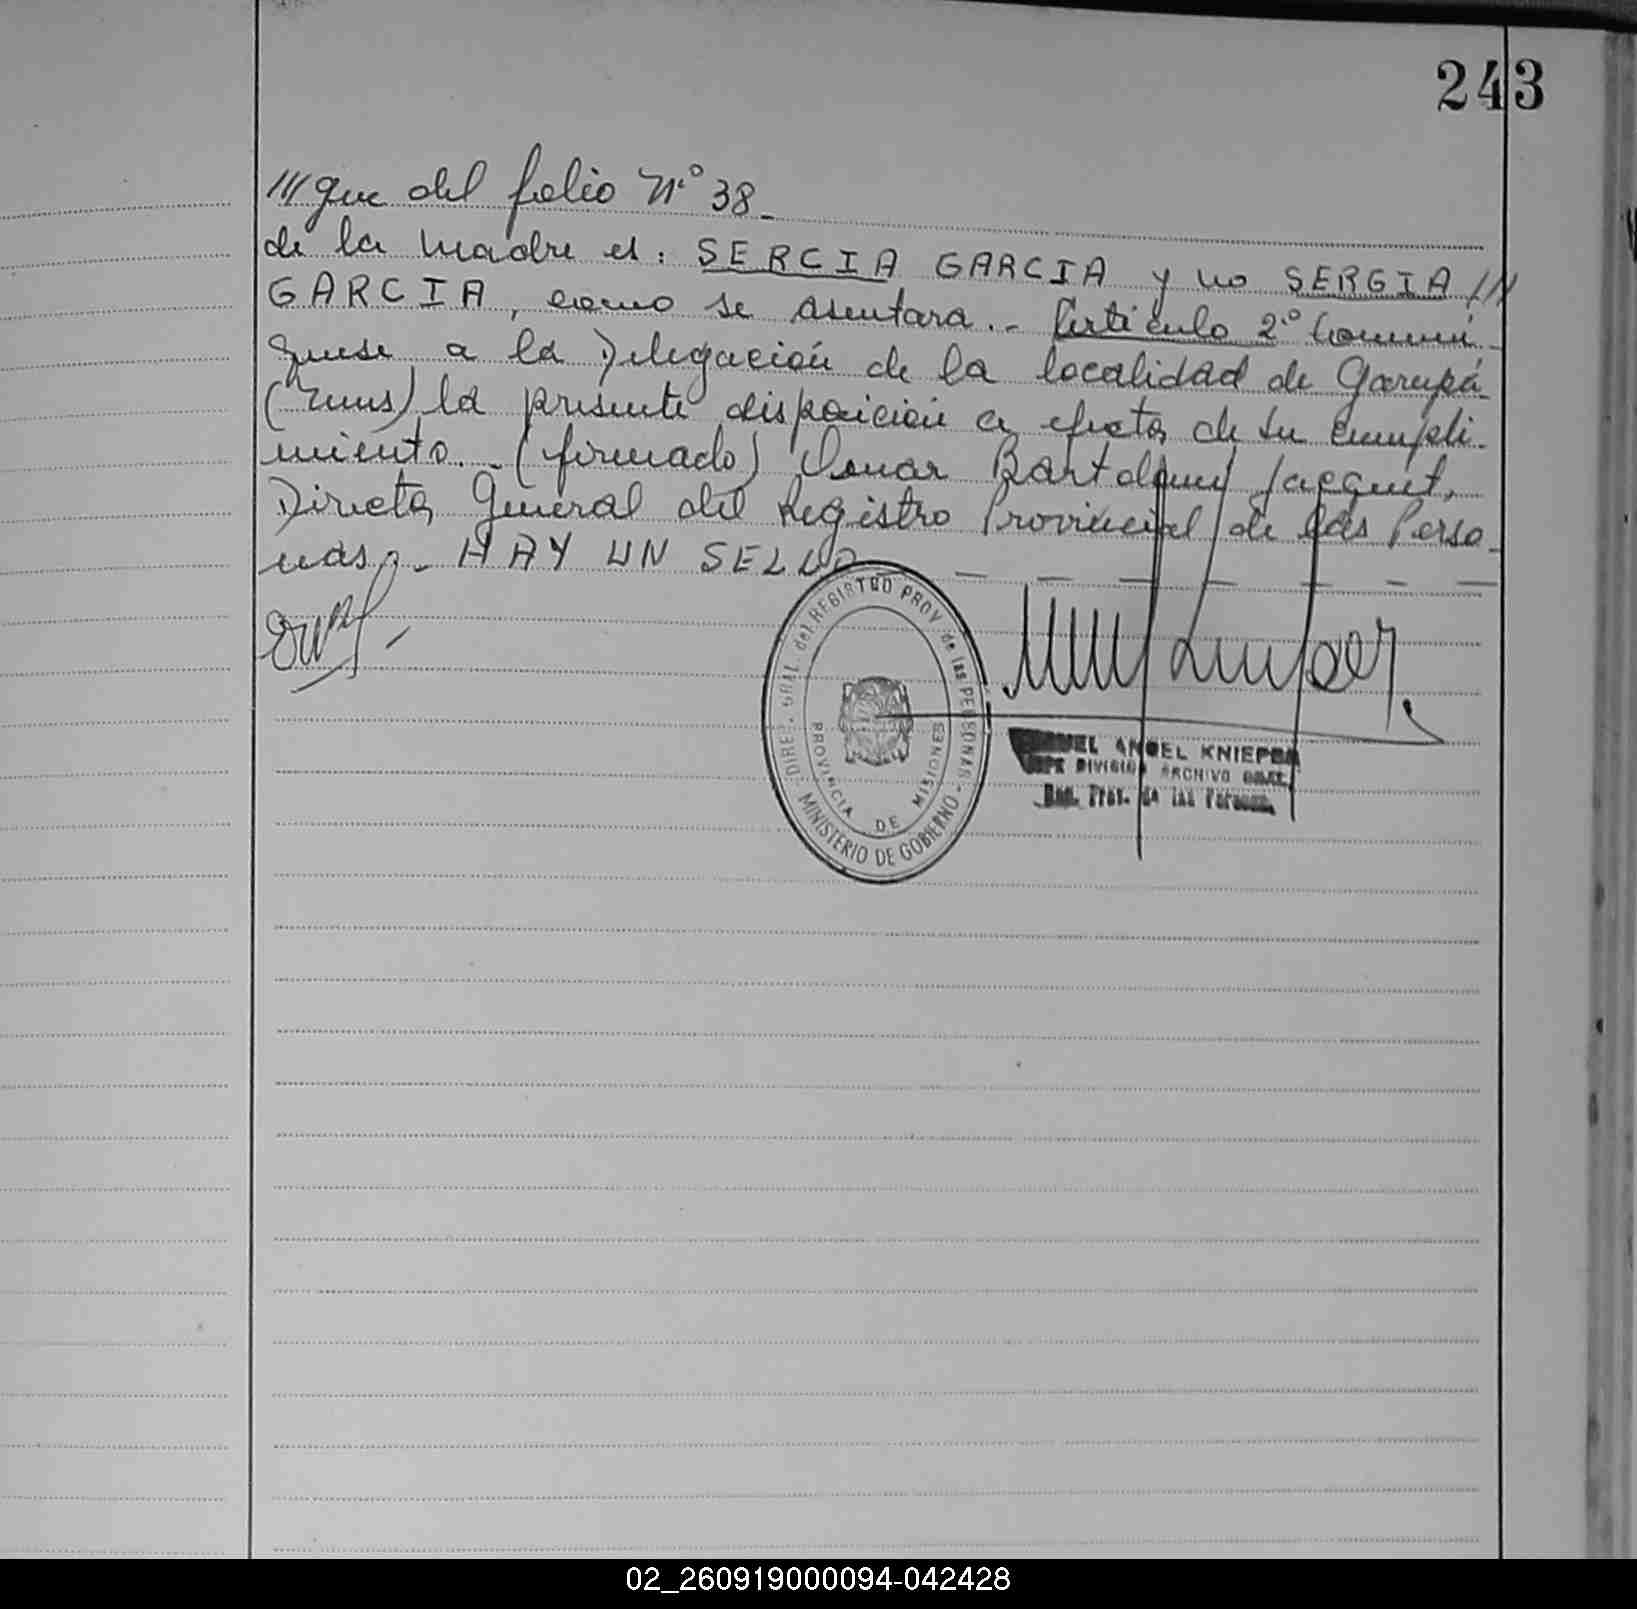 243
///gue del folio Nº 38_
de la madre es: SERCIA GARCIA y no SERGIA ///
GARCIA, como se asentara.- Artículo 2º Comuní
quese a la Delegación de la localidad de Garupá
(Mnes) la presente disposición a efectos de su cumpli-
miento.- (firmado) Omar Bartolomé Jacquet,
Director General del Registro Provincial de las Perso-
nas.- HAY UN SELLO
DIREC. GRAL. del REGISTRO PROV. de las PERSONAS
MINISTERIO DE GOBIERNO
PROVINCIA DE MISIONES
ANGEL KNIEPER
JEFE DIVISION ARCHIVO GRAL.
Reg. Prov. de las Personas
02_260919000094-042428